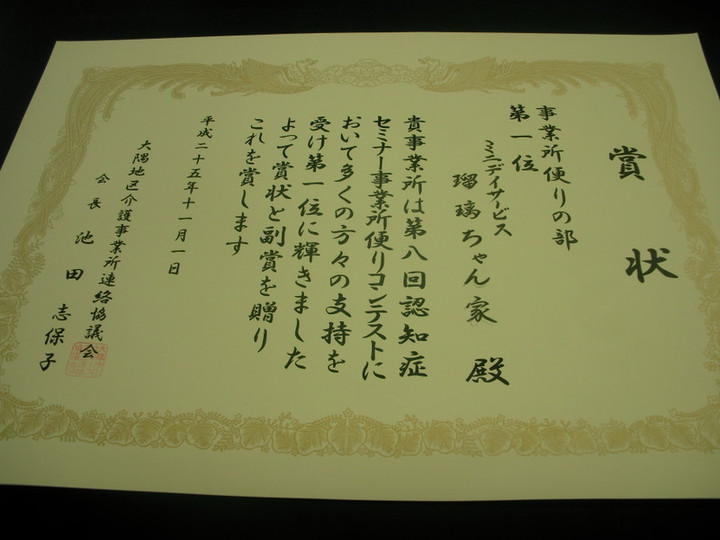 賞状
事業所便りの部
第一位
ミニデイサービス
瑠璃ちゃん家 殿
貴事業所は第八回認知症
セミナー事業所便りコンテストに
おいて多くの方々の支持を
受け第一位に輝きました
よって賞状と副賞を贈り
これを賞します
平成二十五年十一月一日
大隅地区介護事業所連絡協議会
会長 池田志保子